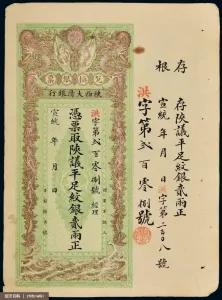 存
根
存陝議平足紋銀貳兩正
宣統 年 月 日洪字第二百〇八號
洪字第貳百零捌號
行銀清大西陝
洪字第貳百零捌號 經理
憑票取陝議平足紋銀貳兩正
宣統 年 月 日